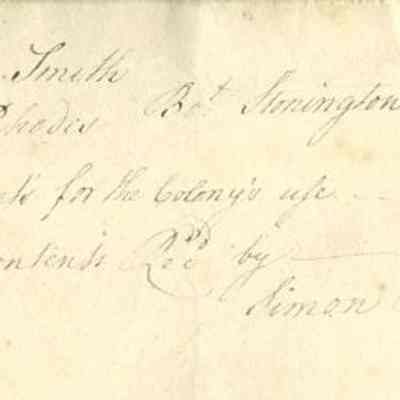 Smith
Rhodes Bot Stonington
for the Colony's use
Contents Recd by
Simon